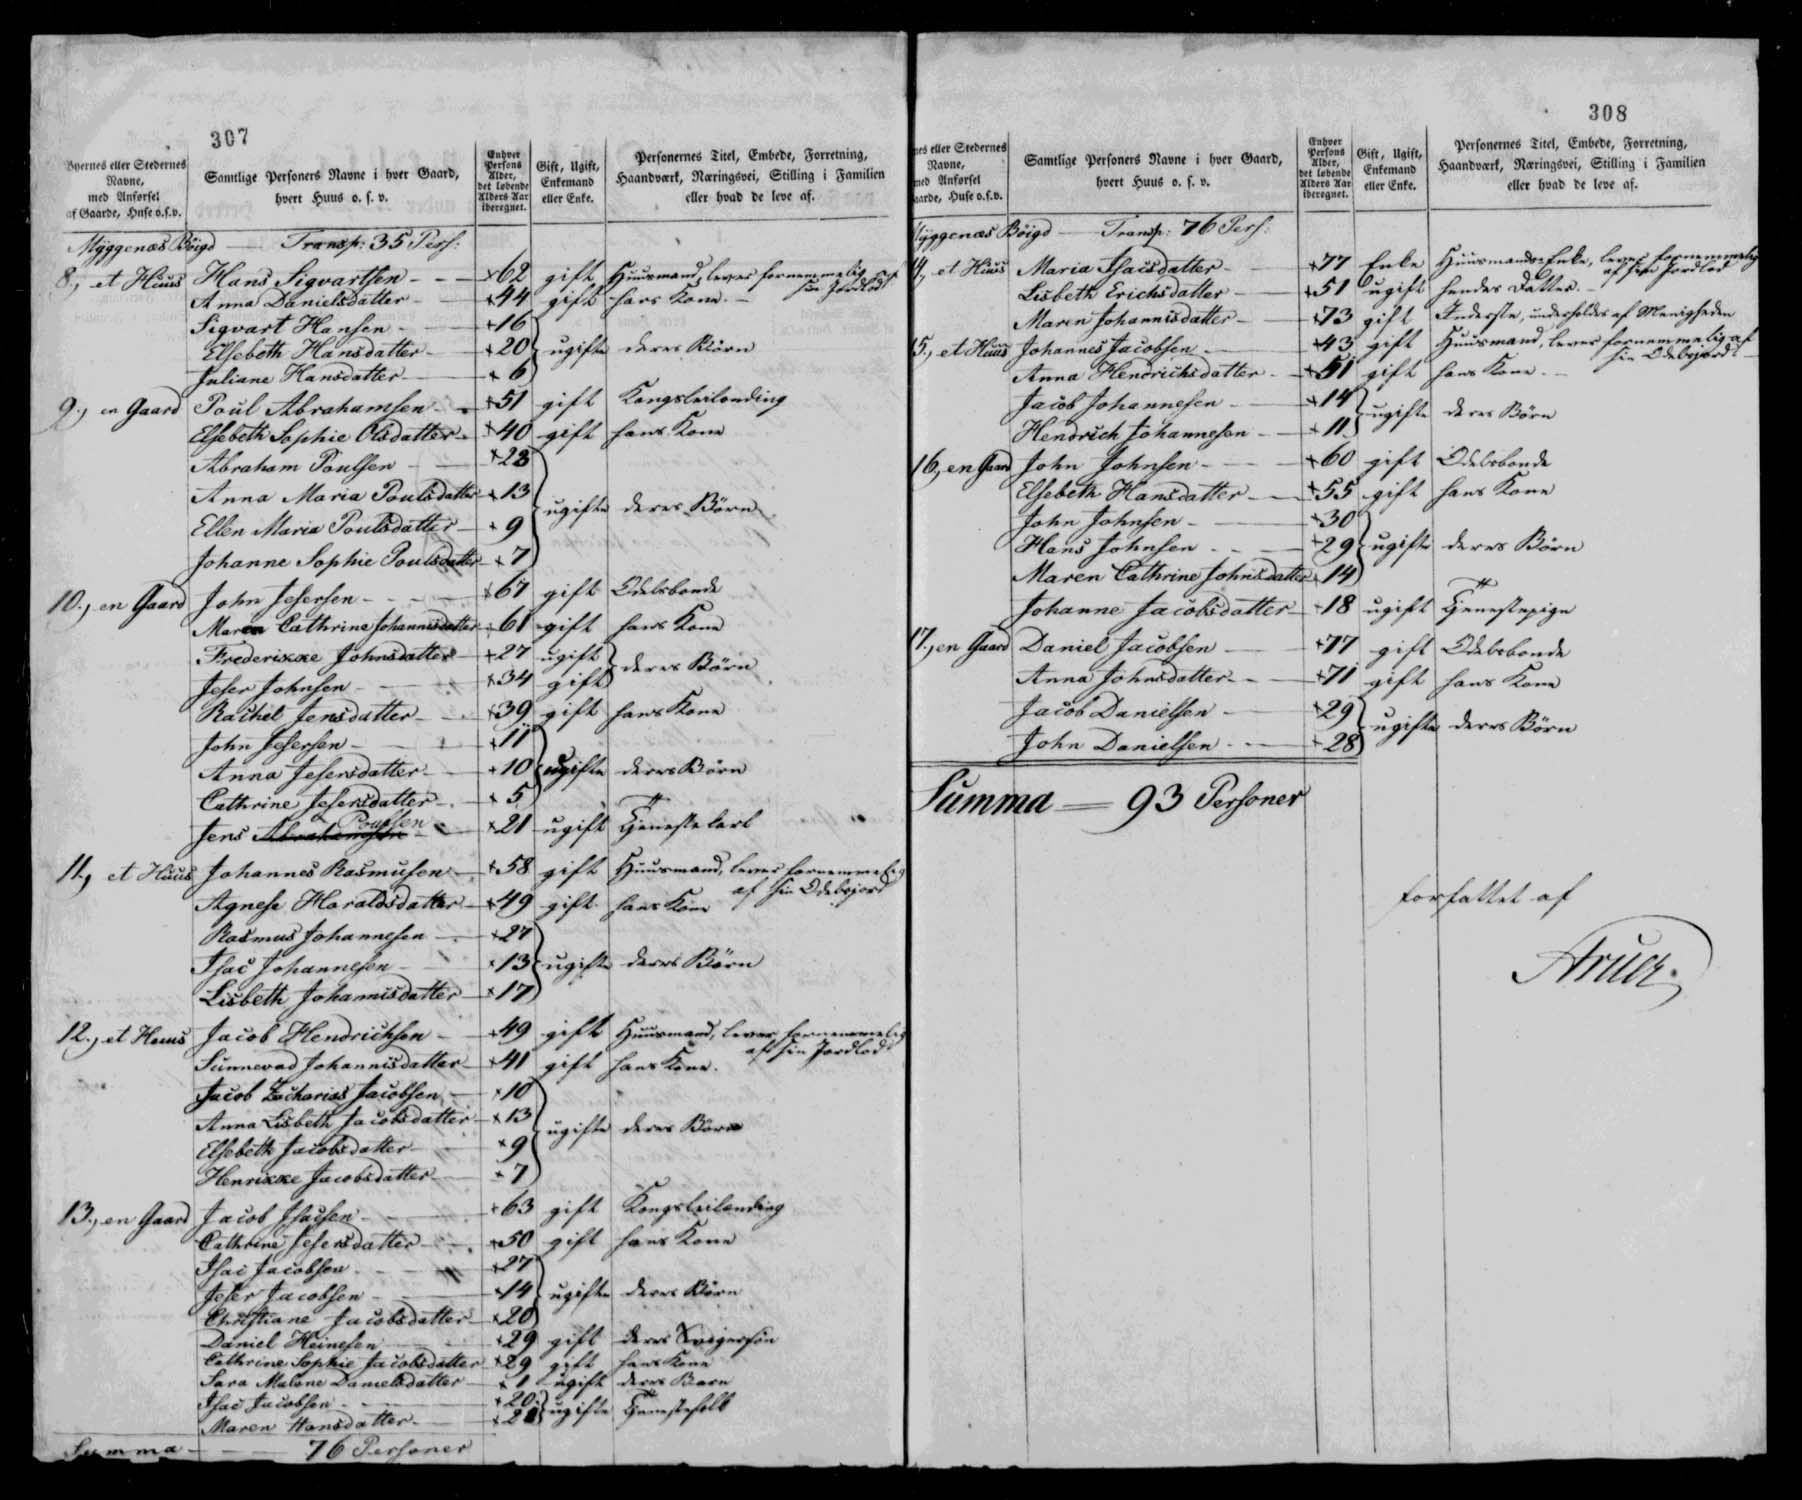 307
Byernes eller Stedernes Navne, med Anførsel af Gaarde, Huse o.s.v.
Samtlige Personers Navne i hver Gaard, hvert Huus o. s. v.
Enhver Persons Alder, det løbende Alders Aar iberegnet.
Gift, Ugift, Enkemand eller Enke.
Personernes Titel, Embede, Forretning, Haandværk, Næringsvei, Stilling i Familien eller hvad de leve af.
Myggenæs Böigd — Transp: 35 Pers:
8., et Huus Hans Sigvartsen - - ×62 gift Huusmand, lever fornemmelig af sin Jordlod
Anna Danielsdatter - ×44 gift hans Kone. -
Sigvart Hansen - ×16
Elsebeth Hansdatter - ×20 ugifte deres Börn
Juliane Hansdatter - ×6
9., en Gaard Poul Abrahamsen - ×51 gift Kongsleilending
Elsebeth Sophie Olsdatter - ×40 gift hans Kone
Abraham Poulsen - ×23
Anna Maria Poulsdatter ×13 ugifte deres Börn
Ellen Maria Poulsdatter - ×9
Johanne Sophie Poulsdatter - ×7
10., en Gaard John Jesersen - - - ×67 gift Odelsbonde
Maren Cathrine Johannesdatter - 61 gift hans Kone
Frederikke Johnsdatter ×27 ugift deres Börn
Jeser Johnsen - ×34 gift
Rachel Jensdatter - ×39 gift hans Kone
John Jesersen - ×11
Anna Jesersdatter - ×10 ugifte deres Börn
Cathrine Jesersdatter - ×5
Jens Abrahamsen Poulsen - ×21 ugift Tjenestekarl
11., et Huus Johannes Rasmusen - ×58 gift Huusmand, lever fornemmelig af sin Odelsjord
Agnese Haraldsdatter - ×49 gift hans Kone
Rasmus Johannesen - ×27
Isac Johannesen - ×13 ugifte deres Börn
Lisbeth Johannisdatter - ×17
12., et Huus Jacob Hendrichsen - ×49 gift Huusmand, lever fornemmelig af sin Jordlod
Sunnevad Johannisdatter - ×41 gift hans Kone.
Jacob Zacharias Jacobsen - ×10
Anna Lisbeth Jacobsdatter - ×13 ugifte deres Börn
Elsebeth Jacobsdatter ×9
Henrikke Jacobsdatter - ×7
13., en Gaard Jacob Isacsen - ×63 gift Kongsleilending
Cathrine Jesersdatter - ×50 gift hans Kone
Isac Jacobsen - ×27
Jeser Jacobsen - ×14 ugifte deres Börn
Christiane Jacobsdatter - ×20
Daniel Heinesen ×29 gift deres Svigersön
Cathrine Sophie Jacobsdatter ×29 gift hans Kone
Sara Malene Danielsdatter - ×1 ugift deres Barn
Isac Jacobsen - ×20 ugifte Tjenestefolk
Maren Hansdatter -
Summa - 76 Personer
308
nes eller Stedernes Navne, med Anførsel aarde, Huse o.s.v.
Samtlige Personers Navne i hver Gaard, hvert Huus o. s. v.
Enhver Persons Alder, det løbende Alders Aar iberegnet.
Gift, Ugift, Enkemand eller Enke.
Personernes Titel, Embede, Forretning, Haandværk, Næringsvei, Stilling i Familien eller hvad de leve af.
Myggenæs Böigd — Transp: 76 Pers:
14., et Huus Maria Isacsdatter - ×77 Enke Huusmands Enke, lever fornemmelig af sin Jordlod
Lisbeth Erichsdatter - ×51 ugift hendes Datter. -
Maren Johannisdatter - ×73 gift Inderste, underholdes af Menigheden
15., et Huus Johannes Jacobsen - ×43 gift Huusmand, lever fornemmelig af sin Odelsjord
Anna Hendrichsdatter - ×51 gift hans Kone. -
Jacob Johannesen - ×14 ugifte deres Börn
Hendrich Johannesen - ×11
16., en Gaard John Johnsen - ×60 gift Odelsbonde
Elsebeth Hansdatter - ×55 gift hans Kone
John Johnsen - ×30
Hans Johnsen - ×29 ugifte deres Börn
Maren Cathrine Johnsdatter ×14
Johanne Jacobsdatter - 18 ugift Tjenestepige
17., en Gaard Daniel Jacobsen - ×77 gift Odelsbonde
Anna Johnsdatter - ×71 gift hans Kone
Jacob Danielsen - ×29 ugifte deres Börn
John Danielsen - ×28
Summa — 93 Personer
forfattet af